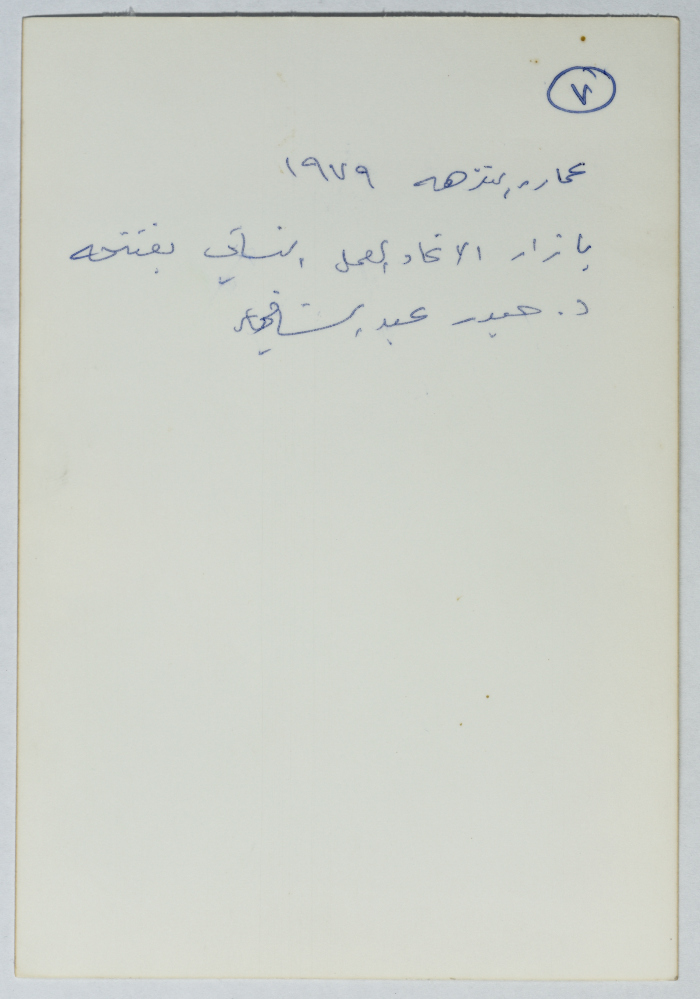 ٧
عمارة المنتزهه ١٩٧٩
بازار الاتحاد العمل النسائي يفتتحه
د. حيدر عبد الشافي